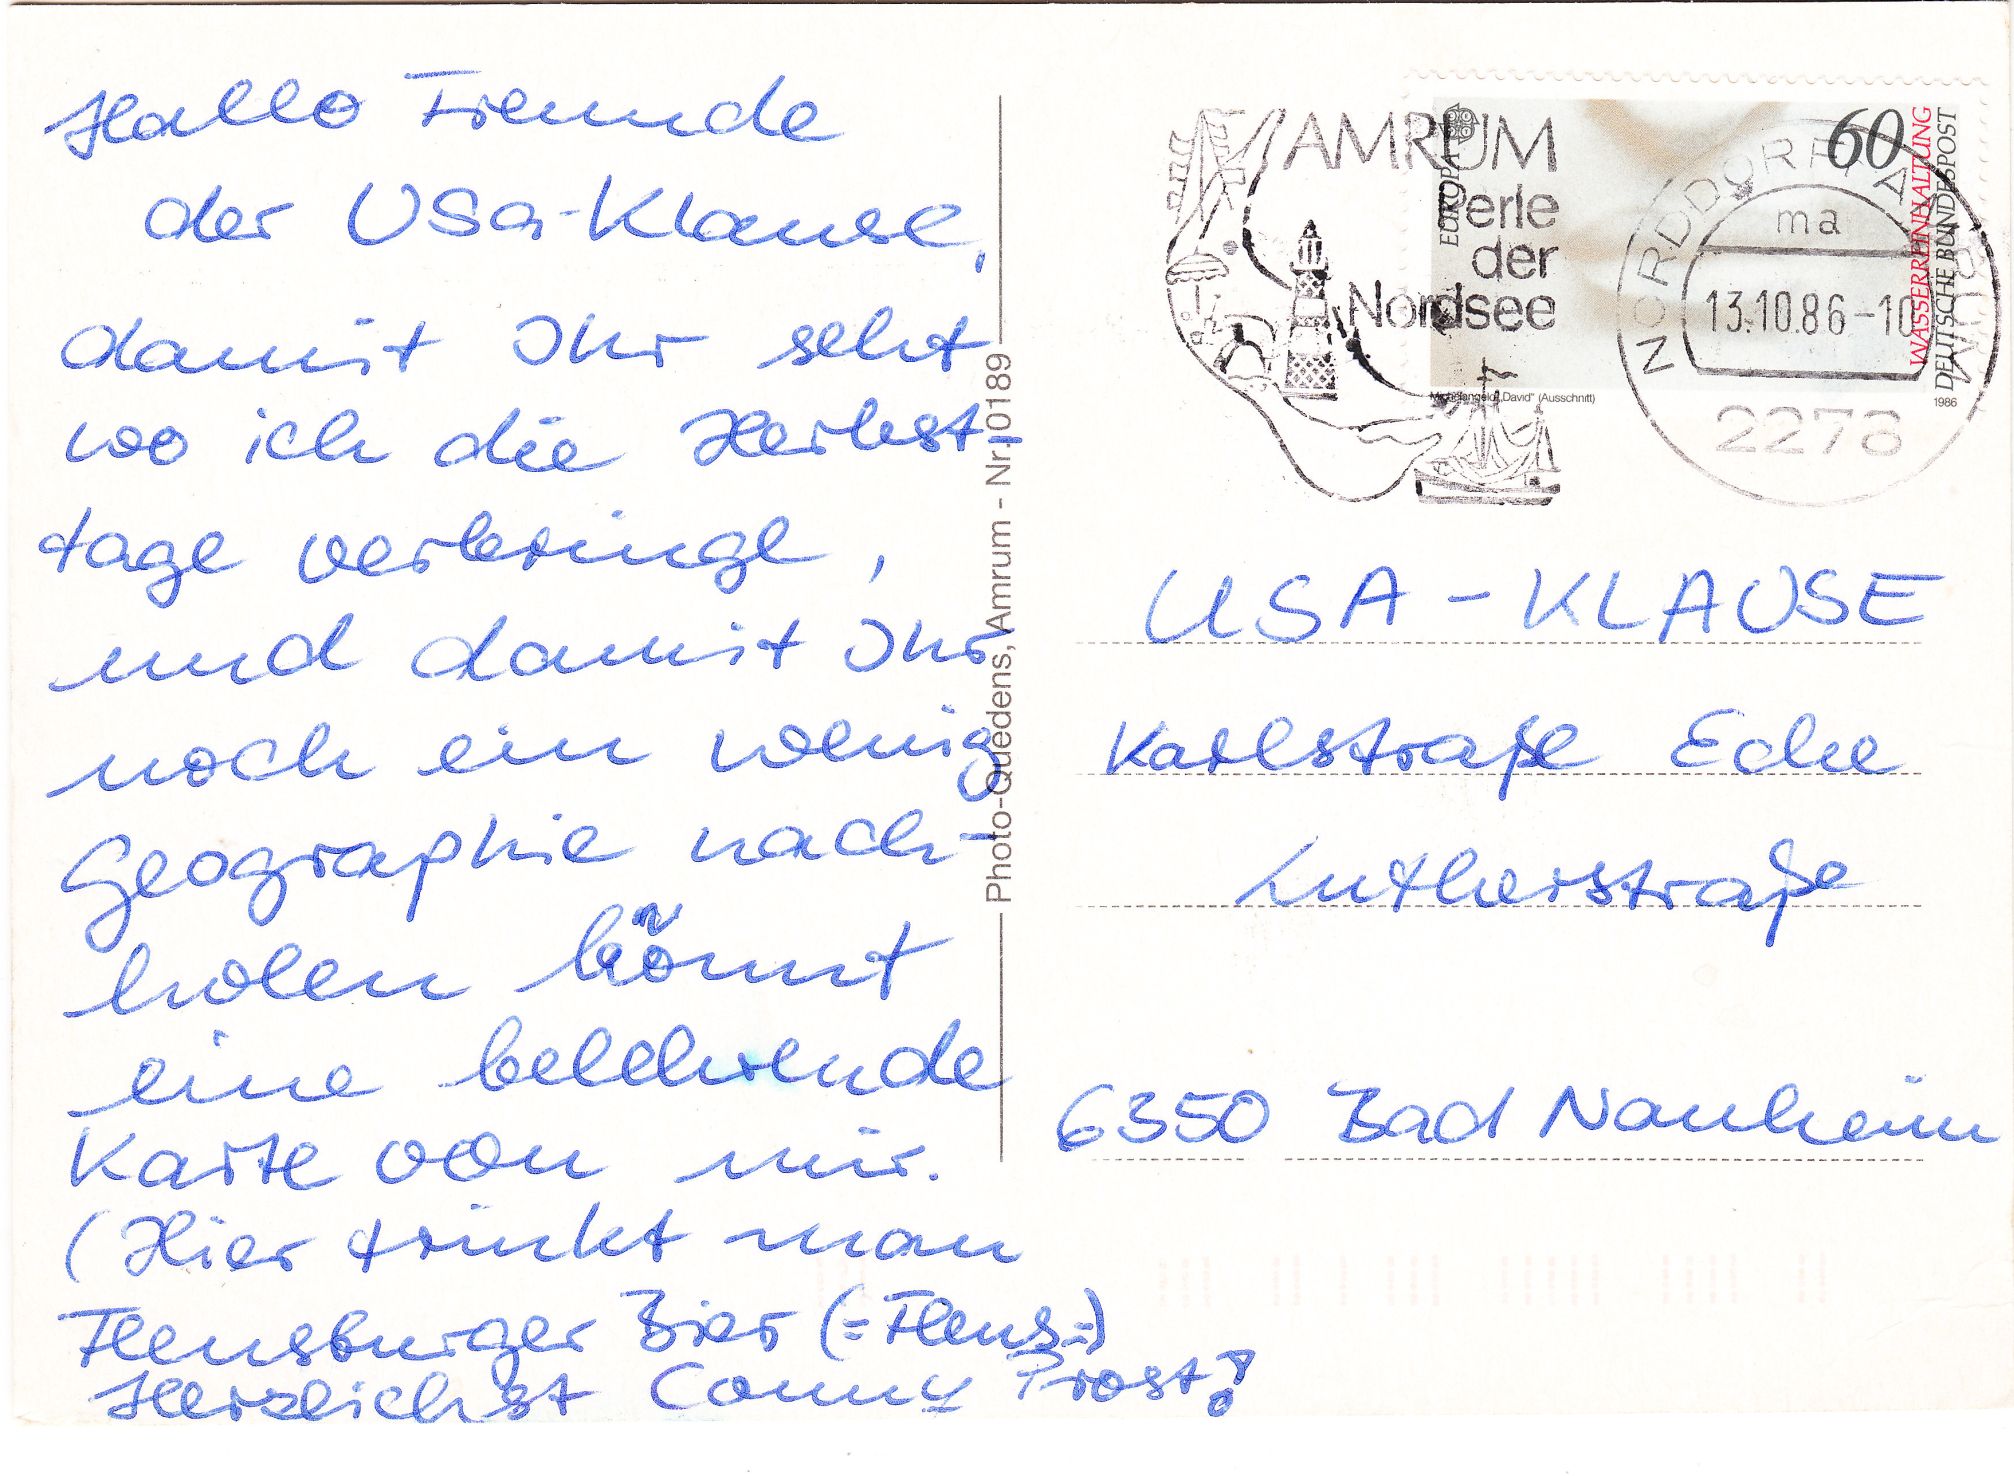 Hallo Freunde
der USA-Klause,
damit Ihr seht
wo ich die Herbst-
tage verbringe,
und damit Ihr
noch ein wenig
Geographie nach-
holen könnt
eine belehrende
Karte von mir.
(Hier trinkt man
Flensburger Bier (=Flens=)
Herzlichst Conny Prost!
Photo-Quedens, Amrum - Nr. 10189
AMRUM
Perle
der
Nordsee
EUROPA
60
WASSERREINHALTUNG
DEUTSCHE BUNDESPOST
Michelangelo „David" (Ausschnitt)
1986
NORDDORF, AMRUM
ma
13.10.86-10
2278
USA-KLAUSE
Karlstraße Ecke
Lutherstraße
6350 Bad Nauheim